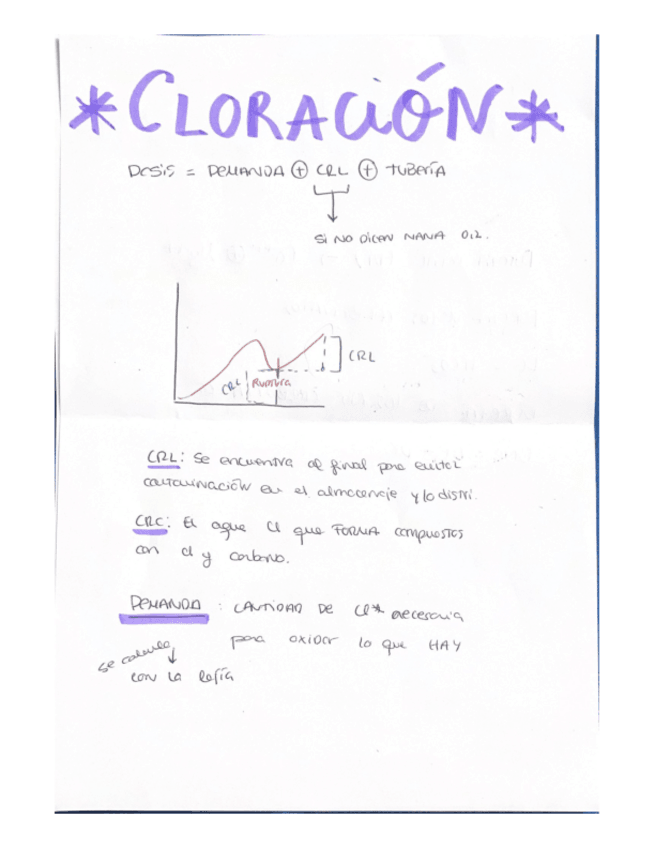 *CLORACIÓN*
DOSIS = DEMANDA + CRL + TUBERÍA
SI NO DICEN NANA 0,2.
CRL
CRC RUPTURA
CRL: Se encuentra al final para evitar
contaminación en el almacenaje y lo distri.
CRC: El agua Cl que FORMA compuestos
con cl y carbono.
DEMANDA: CANTIDAD DE Cl necesaria
para oxidar lo que HAY
se calcula
con la